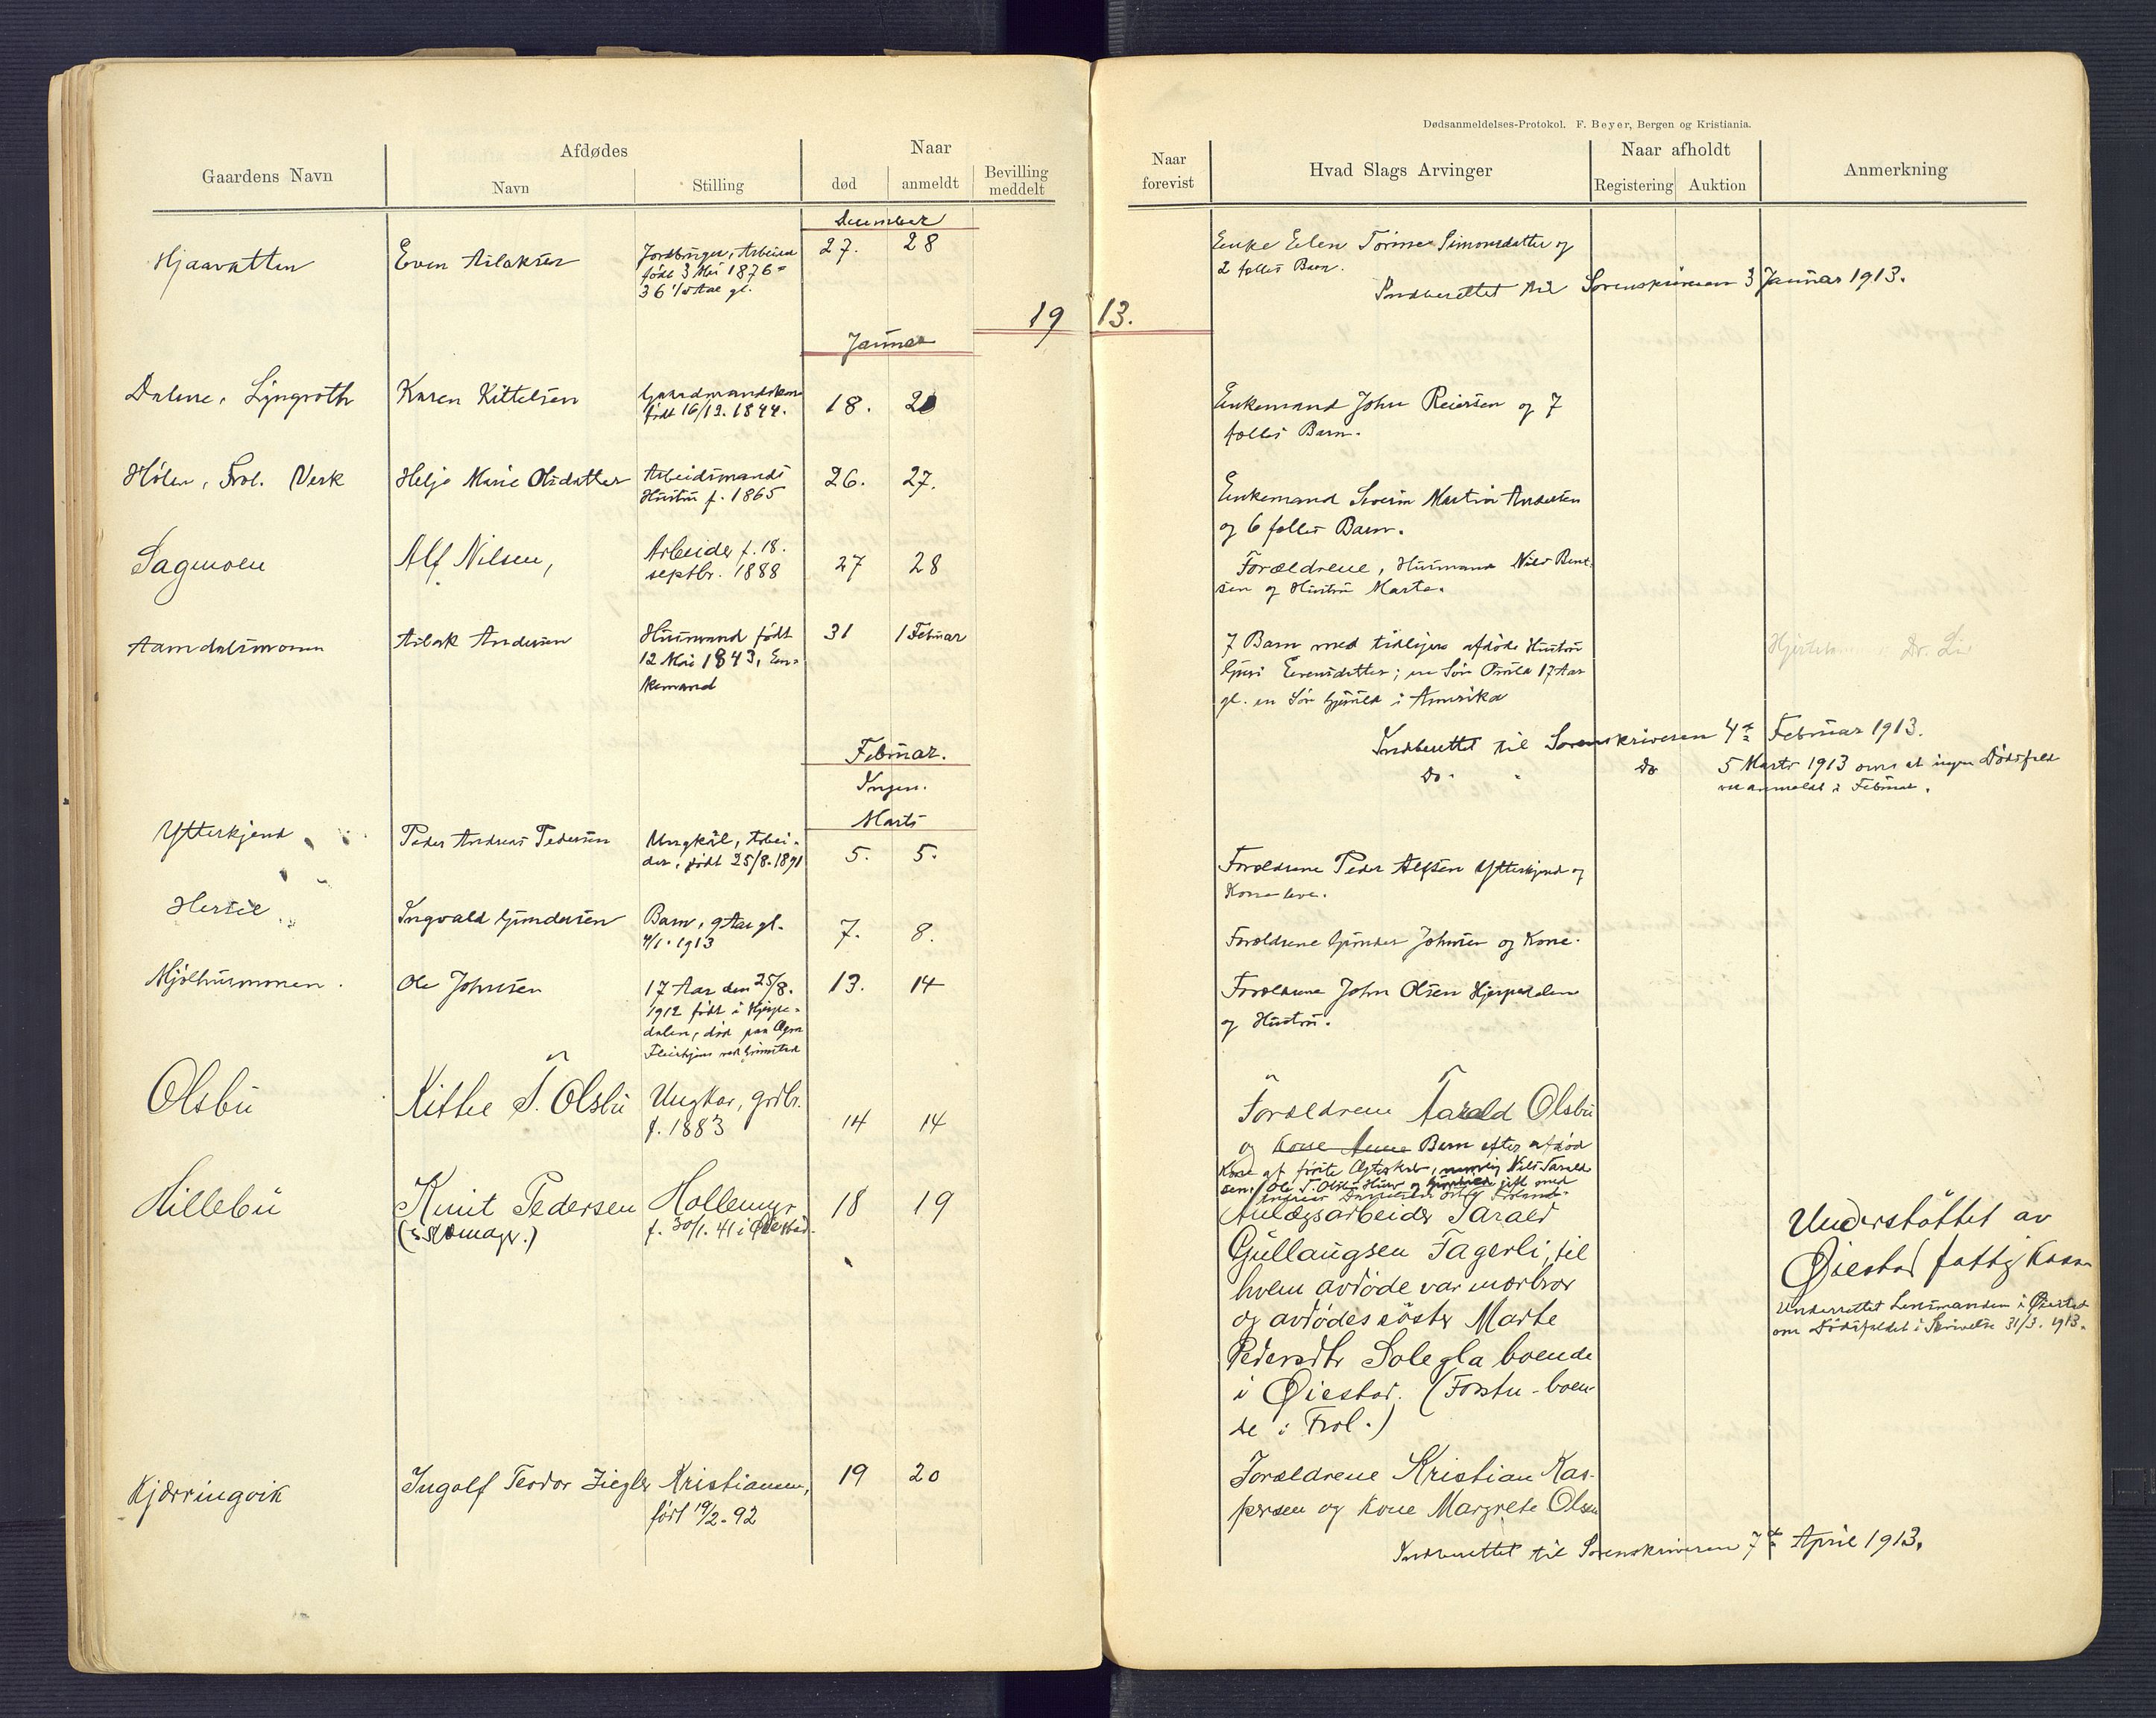 Dødsanmeldelses-Protokol. F. Beyer, Bergen og Kristiania.
Gaardens Navn
Afdødes
Navn
Stilling
Naar
død
anmeldt
Bevilling
meddelt
Naar
forevist
Hvad Slags Arvinger
Naar afholdt
Registering
Auktion
Anmerkning
December
Hjaavatten
Even Aslaksen
Jordbruger, Arbeider
født 3 Mai 1876 =
36 1/2 Aar gl.
27.
28
Enke Elen Torine Simonsdatter og
2 fælles Barn.
Indberettet til Sorenskriveren 3 Januar 1913.
1913.
Januar
Dalene, Lyngroth
Karen Kittelsen
Gaardmandskone
født 16/12. 1844.
18.
20
Enkemand John Reiersen og 7
fælles Barn.
Hølen, Frol. Verk
Helje Marie Olsdatter
Arbeidsmands
Hustru f. 1865
26.
27.
Enkemand Severin Martin Andersen
og 6 fælles Barn.
Sagmoen
Alf Nilsen,
Arbeider f. 18.
septbr. 1888
27
28
Forældrene, Husmand Nils Bent-
sen og Hustru Marte.
Aamdalsmoen
Aslak Andersen
Husmand født
12 Mai 1843, En-
kemand
31
1 Februar
7 Barn med tidligere afdøde Hustru
Guri Evensdatter; en Søn 17 Aar
gl. en Søn i Amerika
Dr.
Indberettet til Sorenskriveren 4de Februar 1913.
Februar.
Ingen.
Do. " Do 5 Marts 1913 om at ingen Dødsfald
var anmeldt i Februar.
Marts
Ytterkjend
Peder Andreas Pedersen
Ungkal, Arbei-
der, født 25/8-1891
5.
5.
Forældrene Peder Alfsen Ytterkjend og
Kone leve.
Hersel
Ingvald Gundersen
Barn, 9 Aar gl.
4/1. 1913
7.
8.
Forældrene Gunder Johnsen og Kone.
Mjølhusmoen.
Ole Johnsen
17 Aar den 25/8.
1912 født i Hjerpe-
dalen, død paa
ved Grimstad
13.
14
Forældrene John Olsen Hjerpedalen
og Hustru.
Olsbu
Kittel T. Olsbu
Ungkar, grdbr.
f. 1883
14
14
Forældrene Tarald Olsbu
og Kone Anne Barn efter afdød
Kone af første Ægteskab, nemlig Nils Tarald-
sen, Ole T. Olsbu og gift med
Hillebu
Knut Pedersen
(skomagr.)
Hollemyr
f. 30/1. 41 i Øiestad.
18
19
Anlægsarbeider Tarald
Gullaugsen Fagerli, til
hvem avdøde var morbror
og avdødes søster Marte
Pedersdtr Solegla boende
i Øiestad. (Første - boen-
de i Frol.)
Understøttet av
Øiestad fattigkasse
Underrettet Lensmanden i Øiestad
om Dødsfaldet i Skrivelse 31/3. 1913.
Kjærringvik
Ingolf Teodor Ziegler Kristiansen,
født 19/2-92
19
20
Forældrene Kristian Kas-
persen og kone Margrete Olsen
Indberettet til Sorenskriveren 7de April 1913.